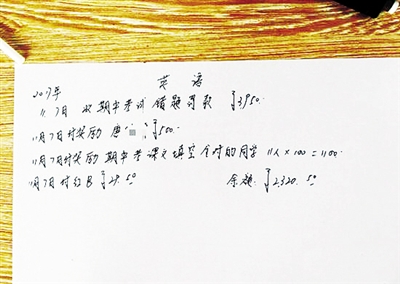 英语
2017年
11月7日 收期中考试错题罚款 ¥3950.
11月7日付奖励 唐 ¥500.
11月7日付奖励 期中考课文填空全对的同学 11人×100=1100.
11月7日付红 ¥29.50 余额: ¥2320.50